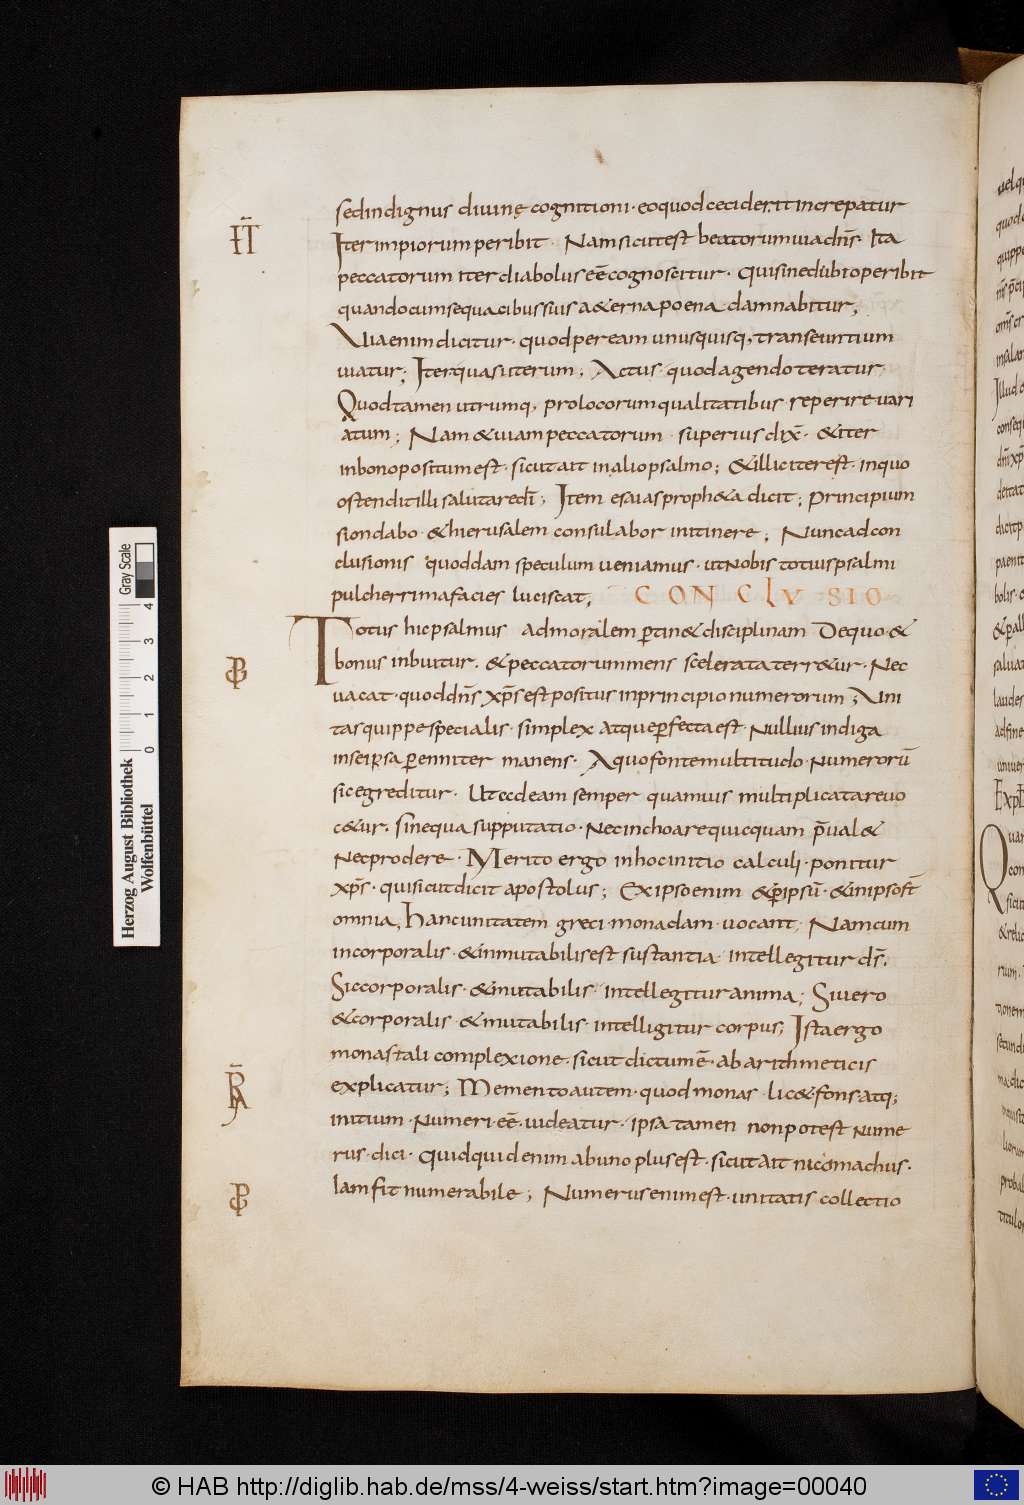 sed indignus diuinę cognitioni · eo quod ceciderit increpatur
Iter impiorum peribit · Nam sicut est beatorum uia dn̄s · Ita
peccatorum iter diabolus eē cognoscitur · Qui sine dubio peribit
quando cum sequacibus suis a&erna poena damnabitur;
Uia enim dicitur · quod per eam unusquisq; transeuntium
uiatur; Iter quasi iterum; Actus quod agendo teratur
Quod tamen utrumq; pro locorum qualitatibus reperire uari
atum; Nam & uiam peccatorum superius dix̄ · & iter
in bono positum est · sicut ait in alio psalmo; & illic iter est · in quo
ostendit illi salutare dī; Item esaias proph&a dicit; Principium
sion dabo · & hierusalem consulabor in itinere; Nunc ad con
clusionis quoddam speculum ueniamus · ut nobis totius psalmi
pulcherrima facies luciscat;
CONCLVSIO
Totus hic psalmus ad moralem ꝑtin& disciplinam De quo · &
bonus inbuitur · & peccatorum mens scelerata terr&ur · Nec
uacat · quod dn̄s xp̄s est positus in principio numerorum; Uni
tas quippe specialis · simplex atque ꝑfecta est · Nullius indiga
in se ipsa ꝑenniter manens · A quo fonte multitudo Numerorū
sic egreditur · Ut ad eam semper quamuis multiplicata reuo
c&ur · sine qua supputatio · Nec inchoare quicquam p̄ual&
Nec prodere · Merito ergo in hoc initio calculi ponitur
xp̄s · qui sicut dicit apostolus; Ex ipso enim & ꝑ ipsū · & in ipso st̄
omnia, Hanc unitatem greci monadam uocant · Nam cum
incorporalis · & inmutabilis est sustantia intellegitur ds̄.
Si corporalis · & mutabilis intellegitur anima; Si uero
& corporalis & mutabilis · intelligitur corpus; Ista ergo
monas tali complexione · sicut dictum ē · ab arithmeticis
explicatur; Memento autem · quod monas lic& fons atq;
initium Numeri · eē · uideatur · ipsa tamen non potest nume
rus · dici · Quidquid enim ab uno plus est · sicut ait nicomachus ·
Iam fit numerabile; Numerus enim est · unitatis collectio
Herzog August Bibliothek
Wolfenbüttel
0 1 2 3 4
Gray Scale
© HAB http://diglib.hab.de/mss/4-weiss/start.htm?image=00040